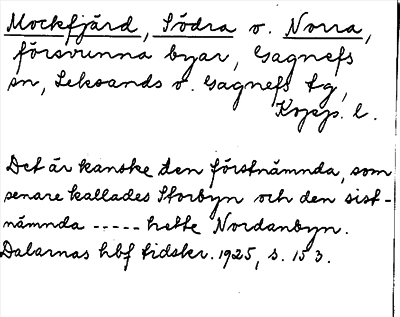 Mockfjärd, Södra o. Norra,
försvunna byar, Gagnefs
sn, Leksands o. Gagnefs tg,
Kopp. l.
Det är kanske den förstnämnda, som
senare kallades Storbyn och den sist-
nämnda ----- hette Nordanbyn.
Dalarnas hbf tidskr. 1925, s. 153.